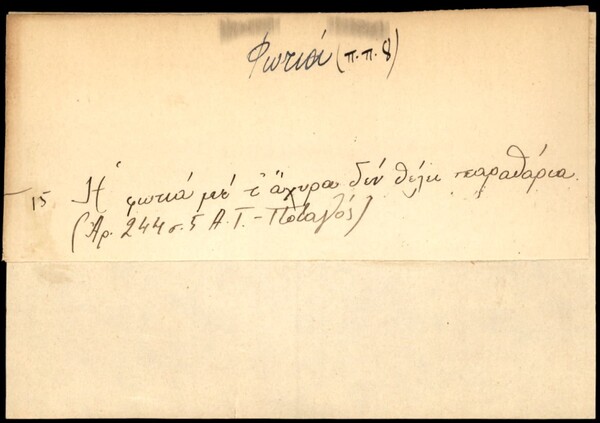 Φωτιά (π.π. 8)
15 Ἡ φωτιά μέ τ' ἄχυρα δέν θέλει παραθάρια.
(Ἀρ. 244 σ. 5 Α.Τ. - Ποταγός)